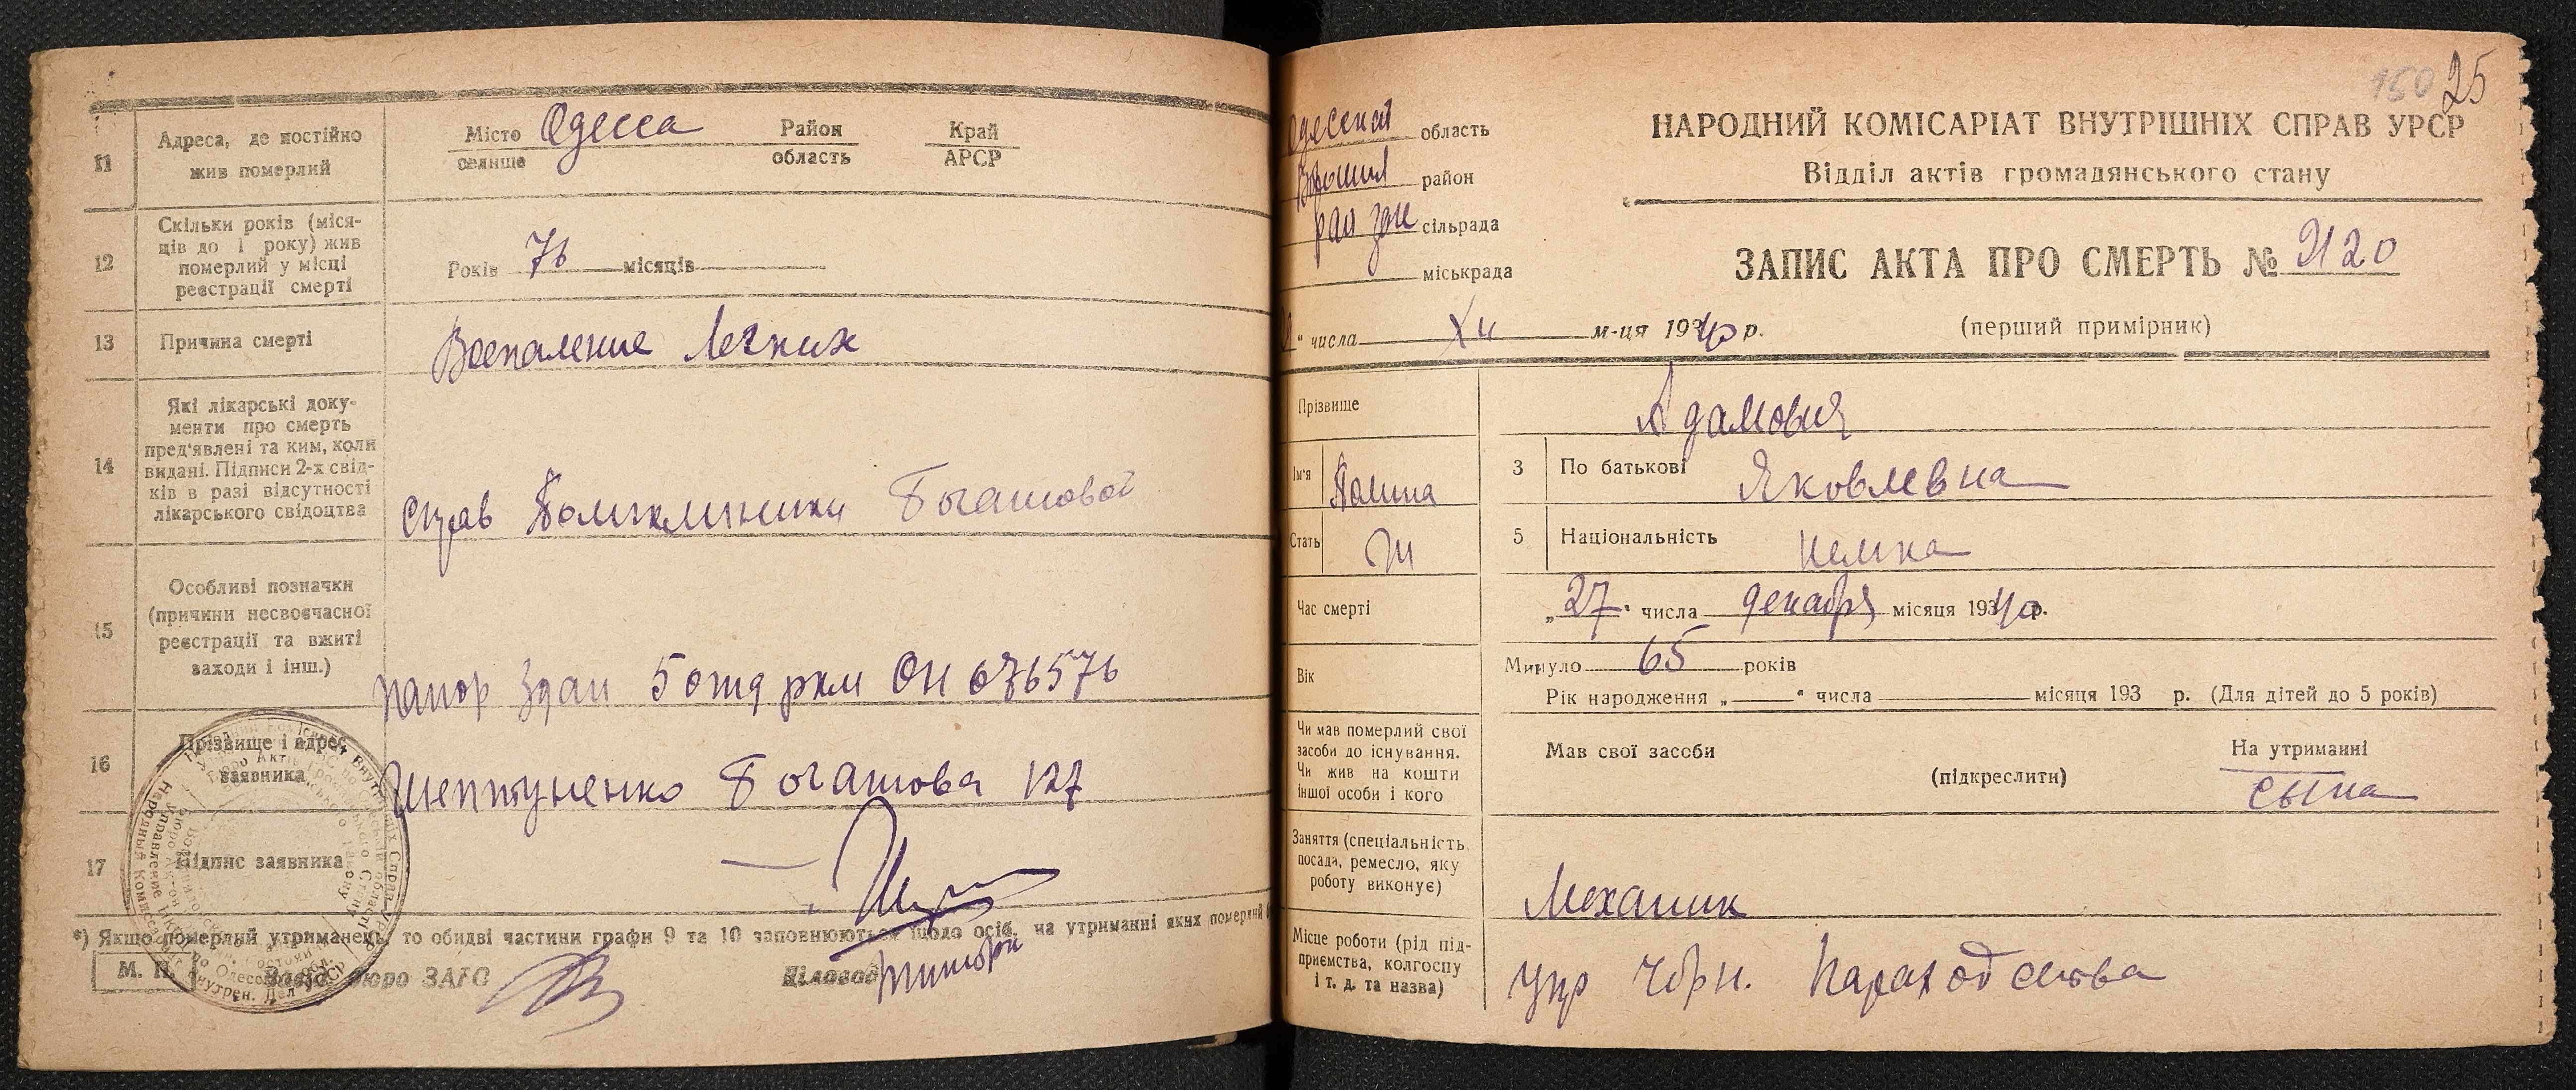 11
Адреса, де постійно
жив померлий
Місто Одесса Район Край
селище область АРСР
12
Скільки років (міся-
ців до 1 року) жив
померлий у місці
реєстрації смерті
Років 7в місяців
13
Причина смерті
Воспаление Легких
14
Які лікарські доку-
менти про смерть
пред'явлені та ким, коли
видані. Підписи 2-х свід-
ків в разі відсутності
лікарського свідоцтва
справ Поликлиники Богатовой
15
Особливі позначки
(причини несвоєчасної
реєстрації та вжиті
заходи і інш.)
паспор здан 5 отд ркм ОН 676576
16
Прізвище і адрес
заявника
Шептуненко Богатова 127
17
Підпис заявника
*) Якщо померлий утриманець, то обидві частини графи 9 та 10 заповнюються щодо осіб, на утриманні яких померлий
М. П.
бюро ЗАГС
Діловод
150 25
Одесской область
Ворошил район
рай сільрада
міськрада
НАРОДНИЙ КОМІСАРІАТ ВНУТРІШНІХ СПРАВ УРСР
Відділ актів громадянського стану
ЗАПИС АКТА ПРО СМЕРТЬ № 2120
" числа XII м-ця 1940 р. (перший примірник)
Прізвище
Адамовия
Ім'я Полина
3 По батькові Яковлевна
Стать Ж
5 Національність немка
Час смерті
„27" числа декабря місяця 1940 р.
Вік
Минуло 65 років
Рік народження „ " числа місяця 193 р. (Для дітей до 5 років)
Чи мав померлий свої
засоби до існування.
Чи жив на кошти
іншої особи і кого
Мав свої засоби
(підкреслити)
На утриманні
сына
Заняття (спеціальність,
посада, ремесло, яку
роботу виконує)
Механик
Місце роботи (рід під-
приємства, колгоспу
і т. д. та назва)
Упр Чорн. Параходства